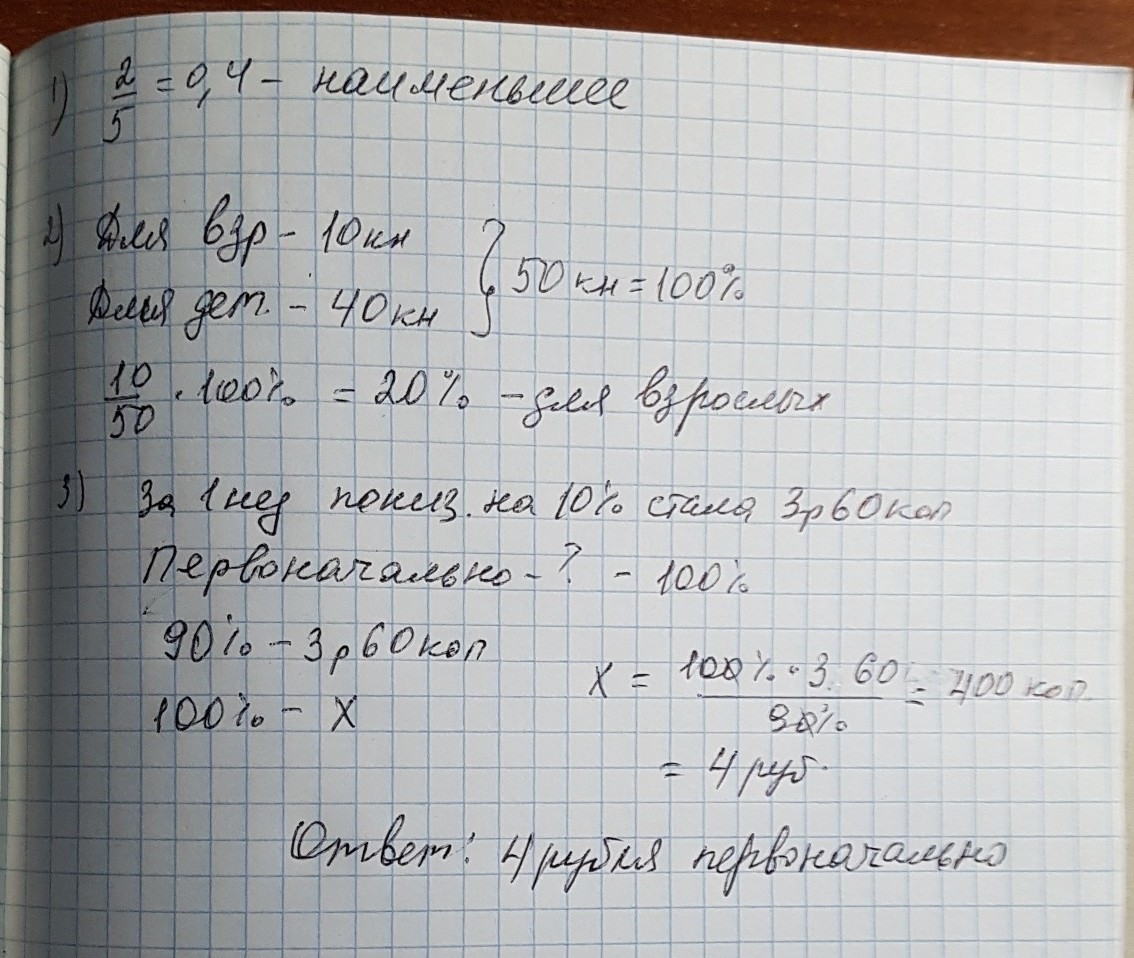 1) 2/5 = 0,4 - наименьшее
2) Для взр - 10 кн
Для дет. - 40 кн } 50 кн = 100%
10/50 · 100% = 20% - для взрослых
3) За 1 нед пониз. на 10% стала 3р 60 коп
Первоначально - ? - 100%
90% - 3р 60 коп
100% - х
х = 100% · 3 60 / 90% = 400 коп
= 4 руб.
Ответ: 4 рубля первоначально